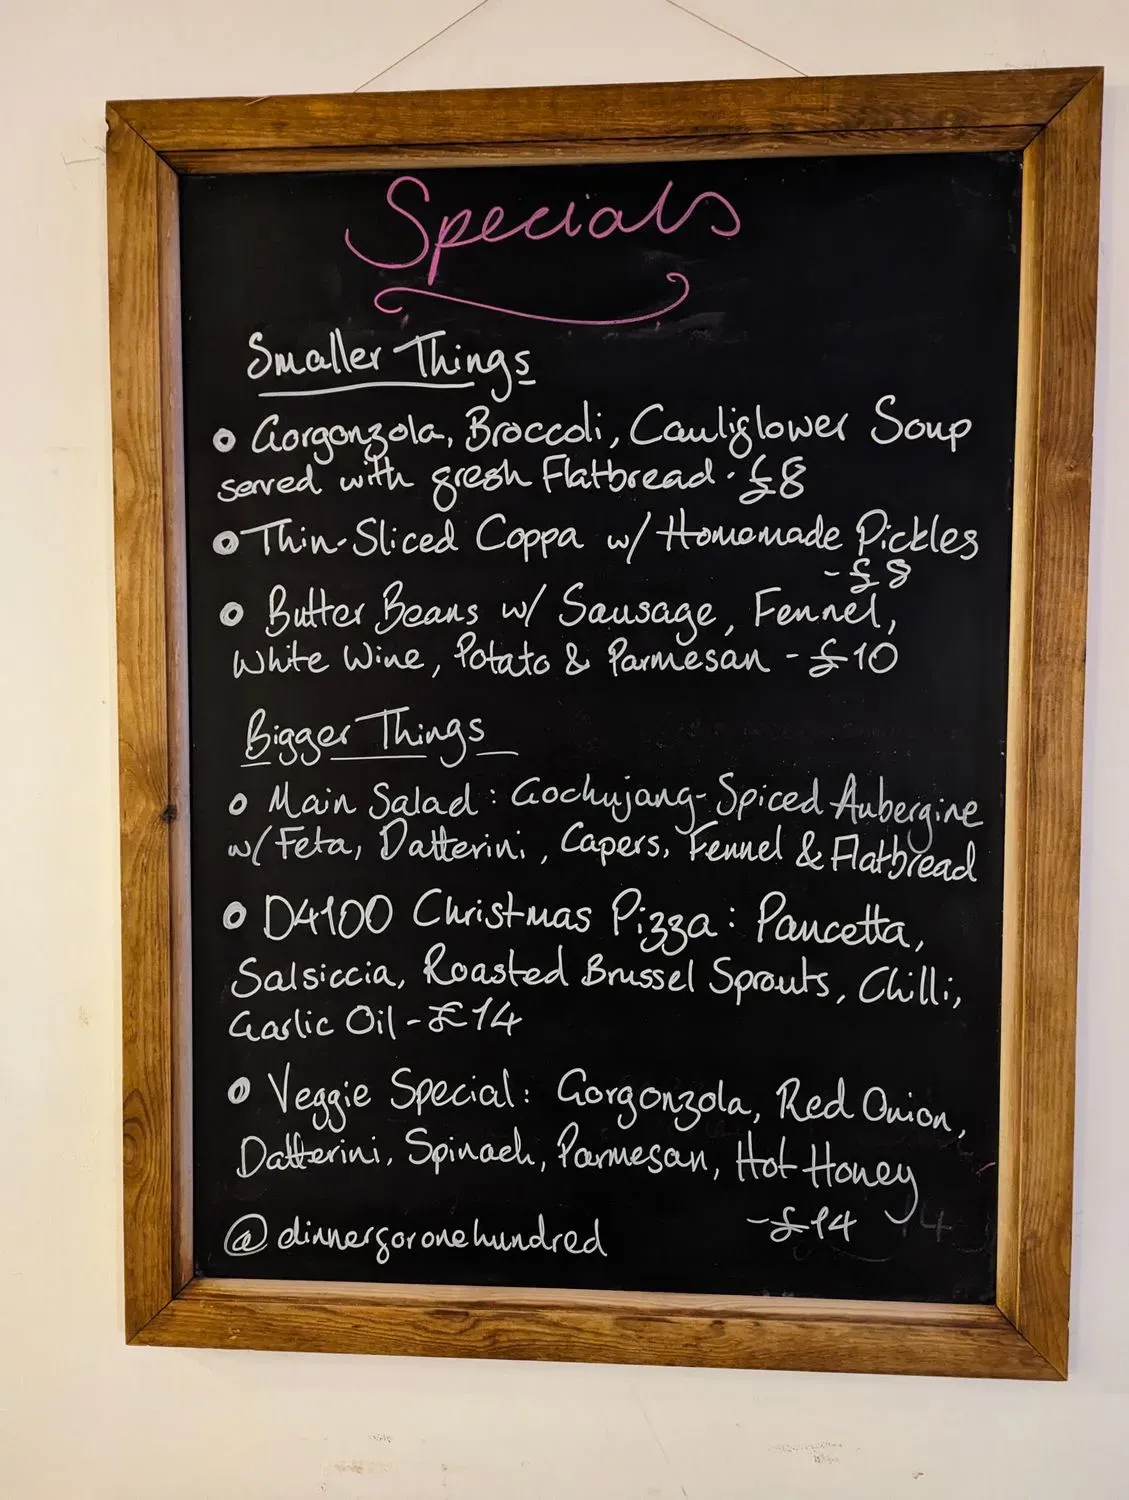 Specials
Smaller Things
Gorgonzola, Broccoli, Cauliflower Soup
served with fresh Flatbread · £8
Thin-Sliced Coppa w/ Homemade Pickles
- £8
Butter Beans w/ Sausage, Fennel,
White Wine, Potato & Parmesan - £10
Bigger Things
Main Salad: Gochujang-Spiced Aubergine
w/ Feta, Datterini, Capers, Fennel & Flatbread
D4100 Christmas Pizza: Pancetta,
Salsiccia, Roasted Brussel Sprouts, Chilli,
Garlic Oil - £14
Veggie Special: Gorgonzola, Red Onion,
Datterini, Spinach, Parmesan, Hot Honey
- £14
@dinnerforonehundred